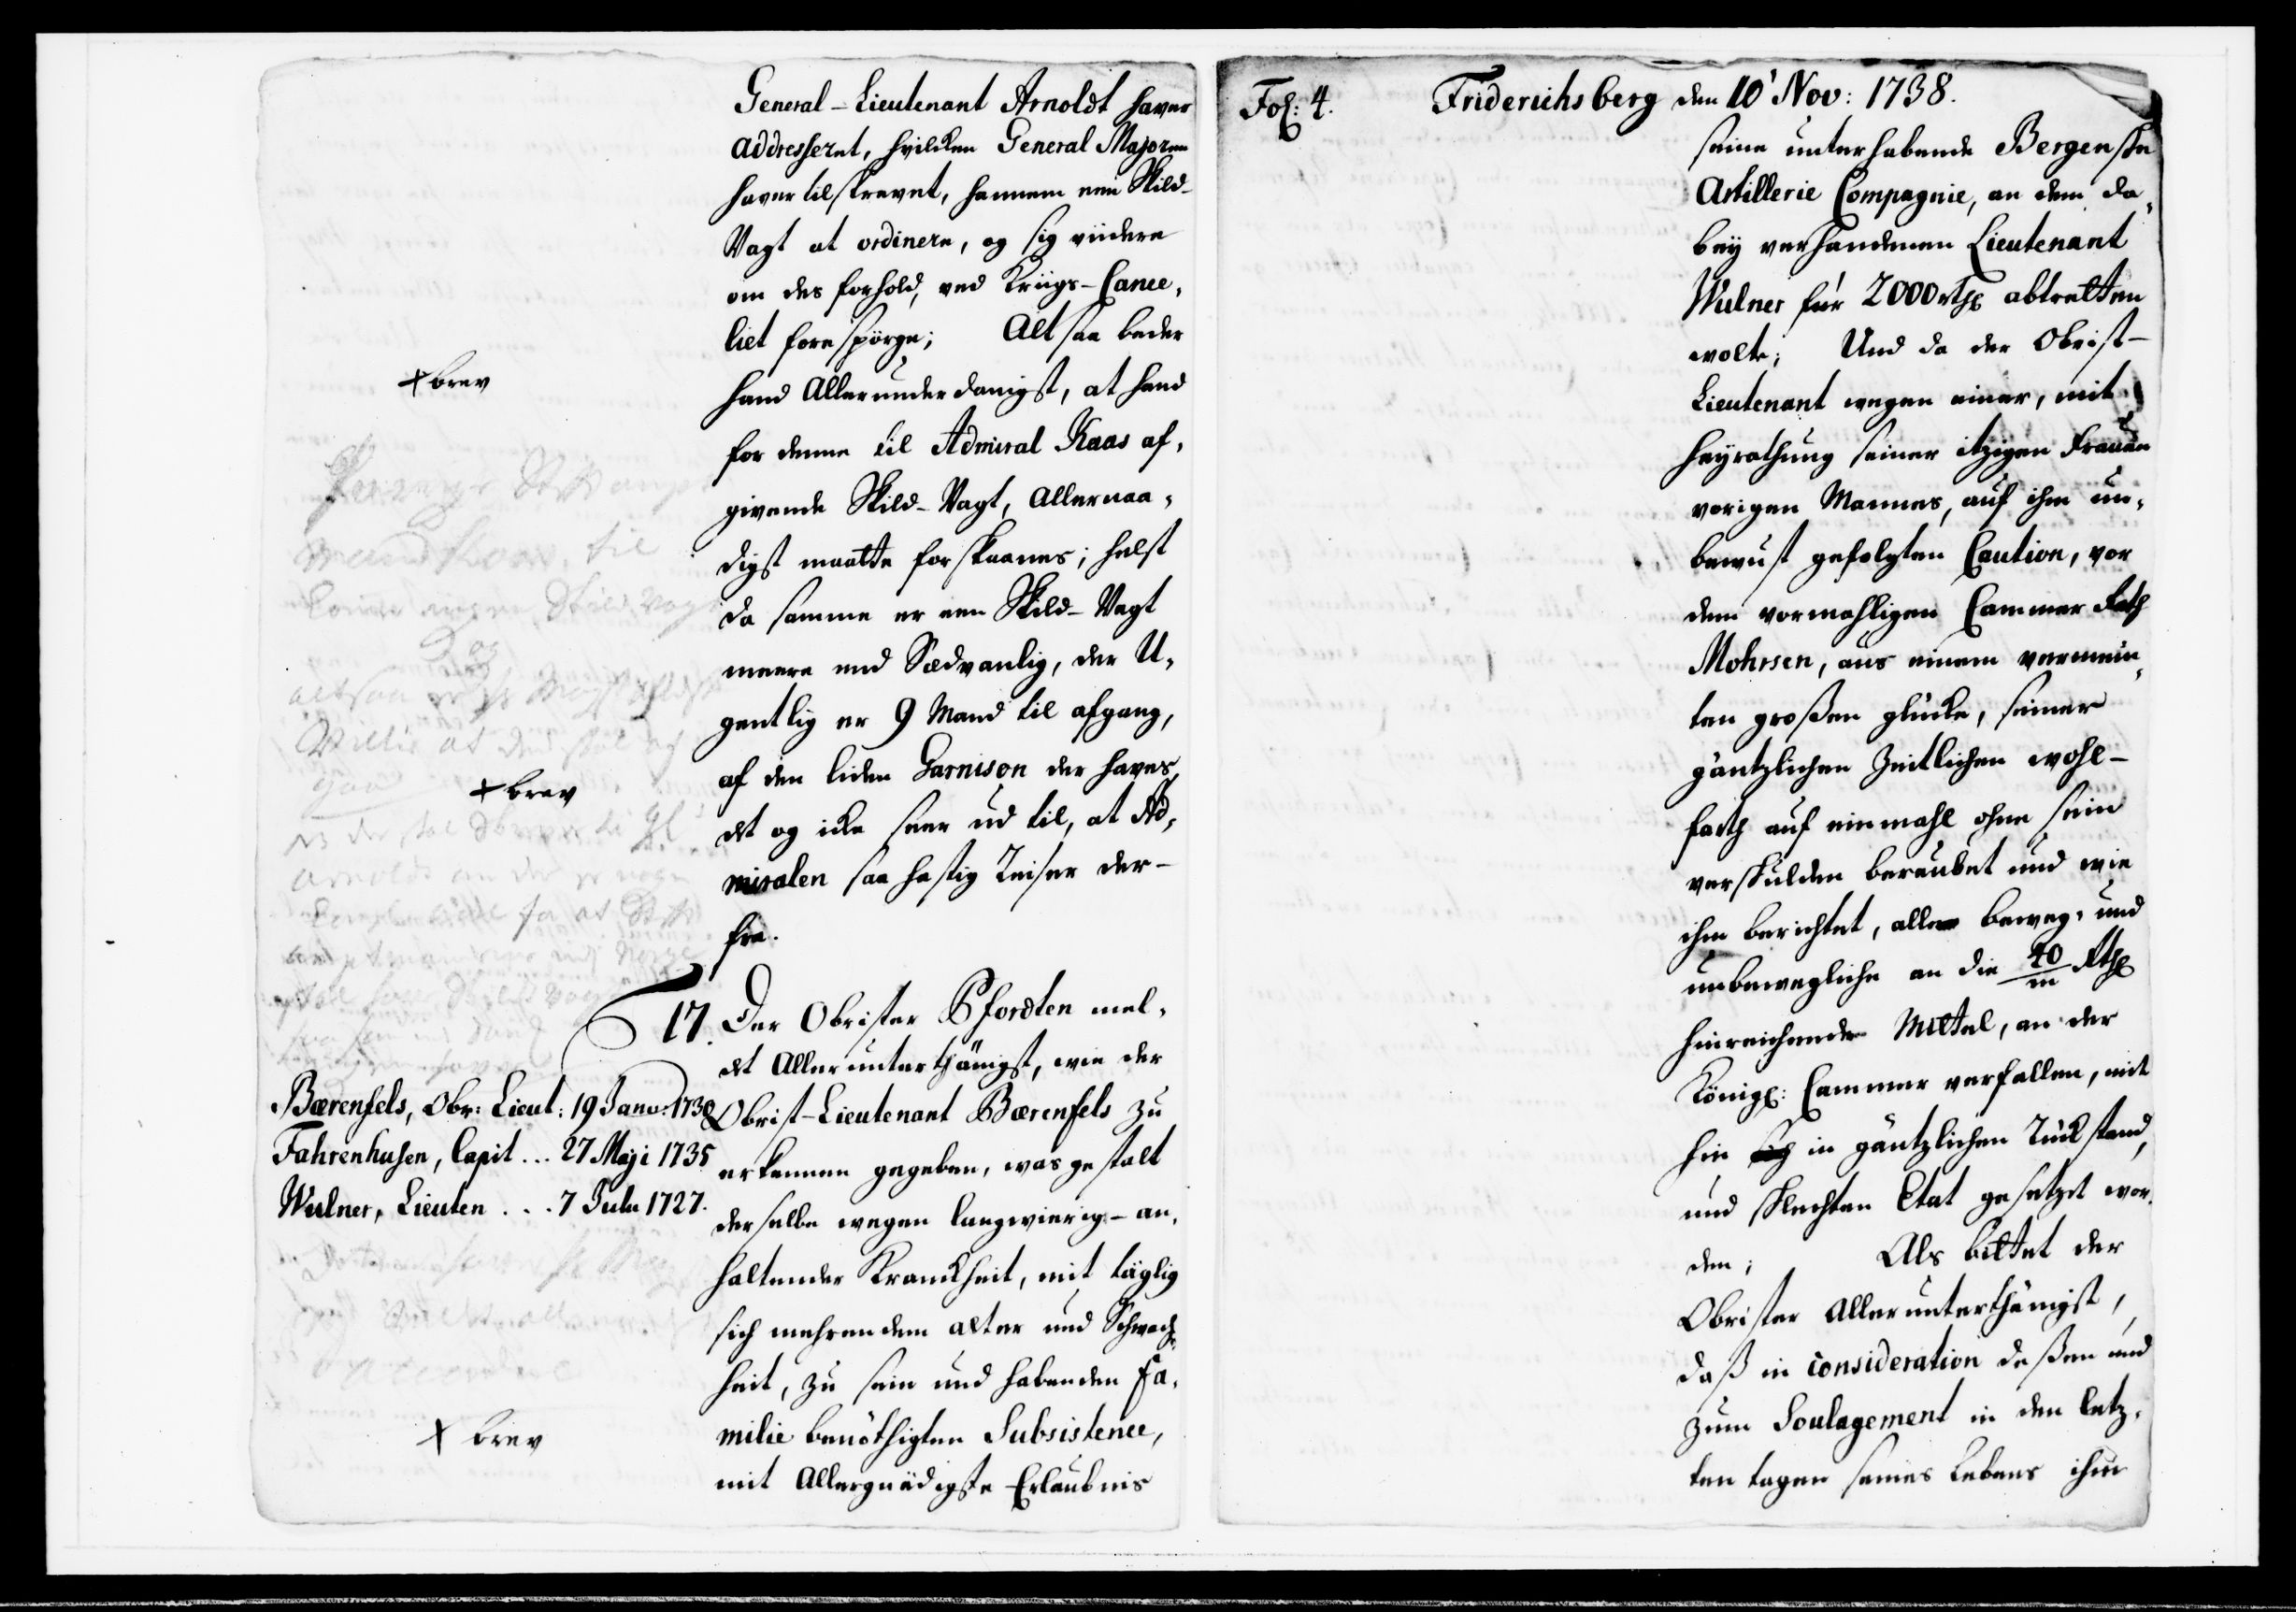 General-Lieutenant Arnoldt haver
addresseret, hvilken General Majoren
haver tilskrevet, hannem een Skild-
Vagt at ordinere, og sig viidere
om des forhold, ved Kriigs-Cance,
liet forespörge; Alt saa beder
hand Allerunderdanigst, at hand
for denne til Admiral Kaas af,
givende Skild-Vagt, Allernaa,
digst maatte forskaanes; helst
da samme er een Skild-Vagt
meere end Sædvanlig, der U,
gentlig er 9 Mand til afgang,
af den liden Garnison der haves,
det og icke seer ud til, at Ad,
miralen saa hastig Reiser der-
fra.
+ brev
+ brev
17. Der Obrister Pfordten mel,
det Allerunterthänigst, wie der
Obrist-Lieutenant Bærenfels zu
erkennen gegeben, was gestalt
derselbe wegen langwierig-an,
haltender Kranckheit, mit täglig
sich mehrendem alter und Schwach,
heit, zu sein und habenden Fa,
milie benöthigten Subsistence,
mit Allergnädigste Erlaubnis
Bærenfels, Obr: Lieut: 19 Janv: 1730
Fahrenhusen, Capit... 27 Maji 1735
Wulner, Lieuten... 7 Julii 1727.
+ brev
Fol: 4.
Friderichsberg den 10' Nov: 1738.
seine unterhabende Bergenske
Artillerie Compagnie, an dem da,
bey verhandenen Lieutenant
Wulner für 2000 rthl abtretten
wolte; Und da der Obrist-
Lieutenant wegen einer, mit
heyrathung seiner itzigen Frauen
vorigen Mannes, auf ihm un,
bewust gefolgten Caution, vor
dem vormahligen Cammer Rath
Mohrsen, aus einem vermein,
ten großen glücke, seiner
gäntzlichen Zeitlichen wohl-
farth auf einmahl ohne sein
verskulden beraubet und wie
ihm berichtet, alle beweg, und
unbewegliche an die 40/m Rthl
hinreichende Mittel, an der
Königl: Cammer verfallen, mit
hin in gäntzlichen Rückstand,
und schlechten Etat gesetzet wor,
den; Als bittet der
Obrister Allerunterthänigst,
daß in consideration deßen und
zum Soulagement in den letz,
ten tagen seines Lebens ihm